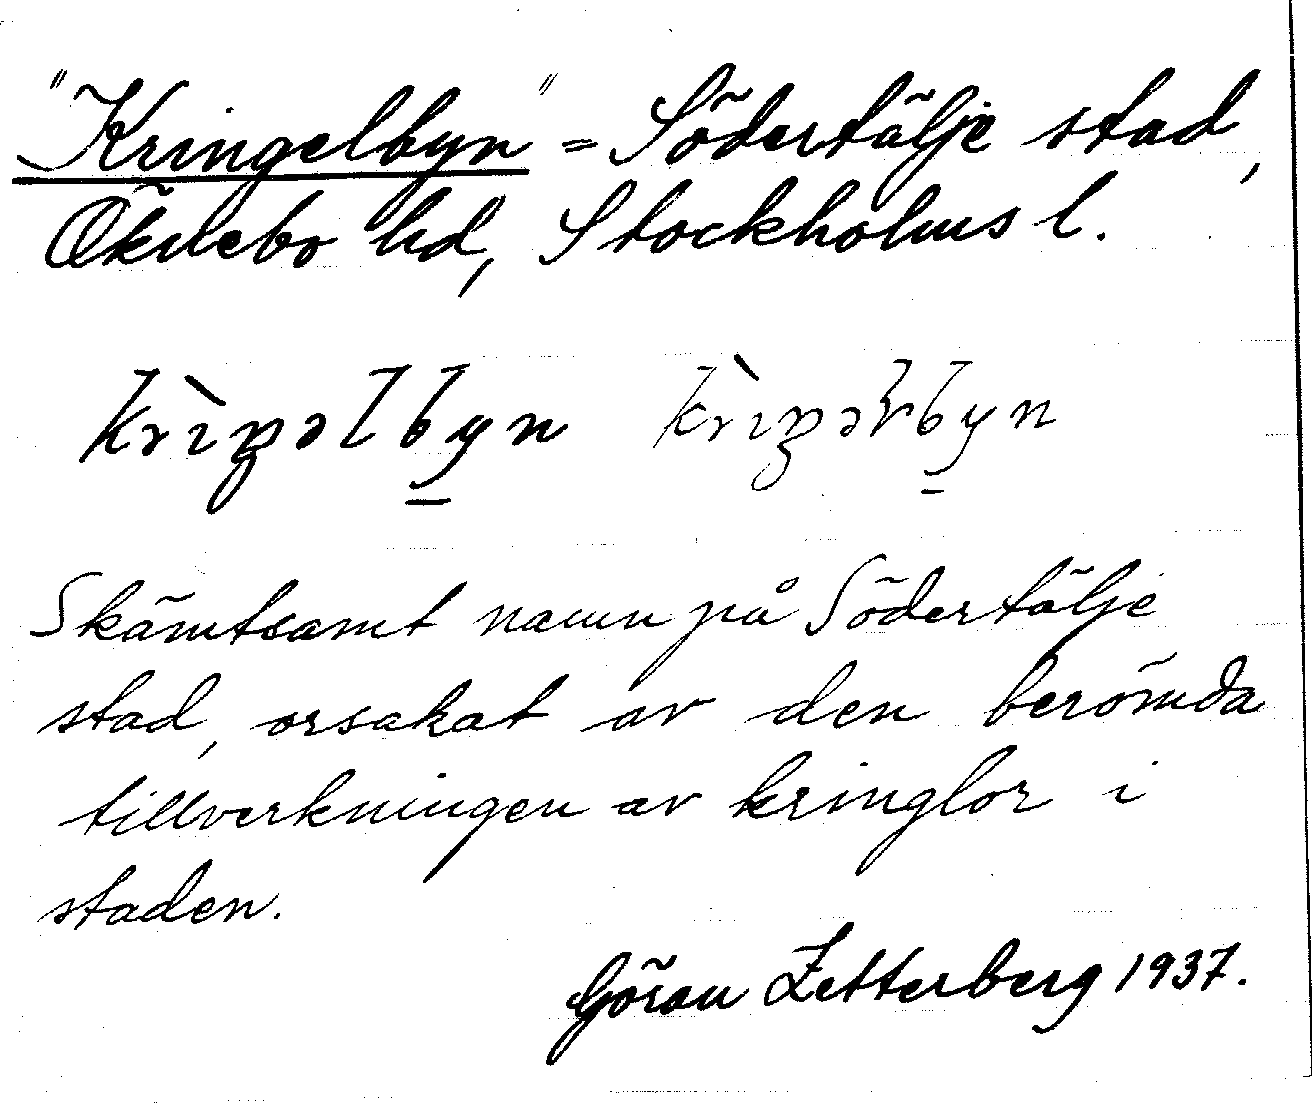 "Kringelbyn" = Södertälje stad,
Öknebo hd, Stockholms l.
krìŋəlbyn krìŋəɽbyn
Skämtsamt namn på Södertälje
stad, orsakat av den berömda
tillverkningen av kringlor i
staden.
Göran Zetterberg 1937.